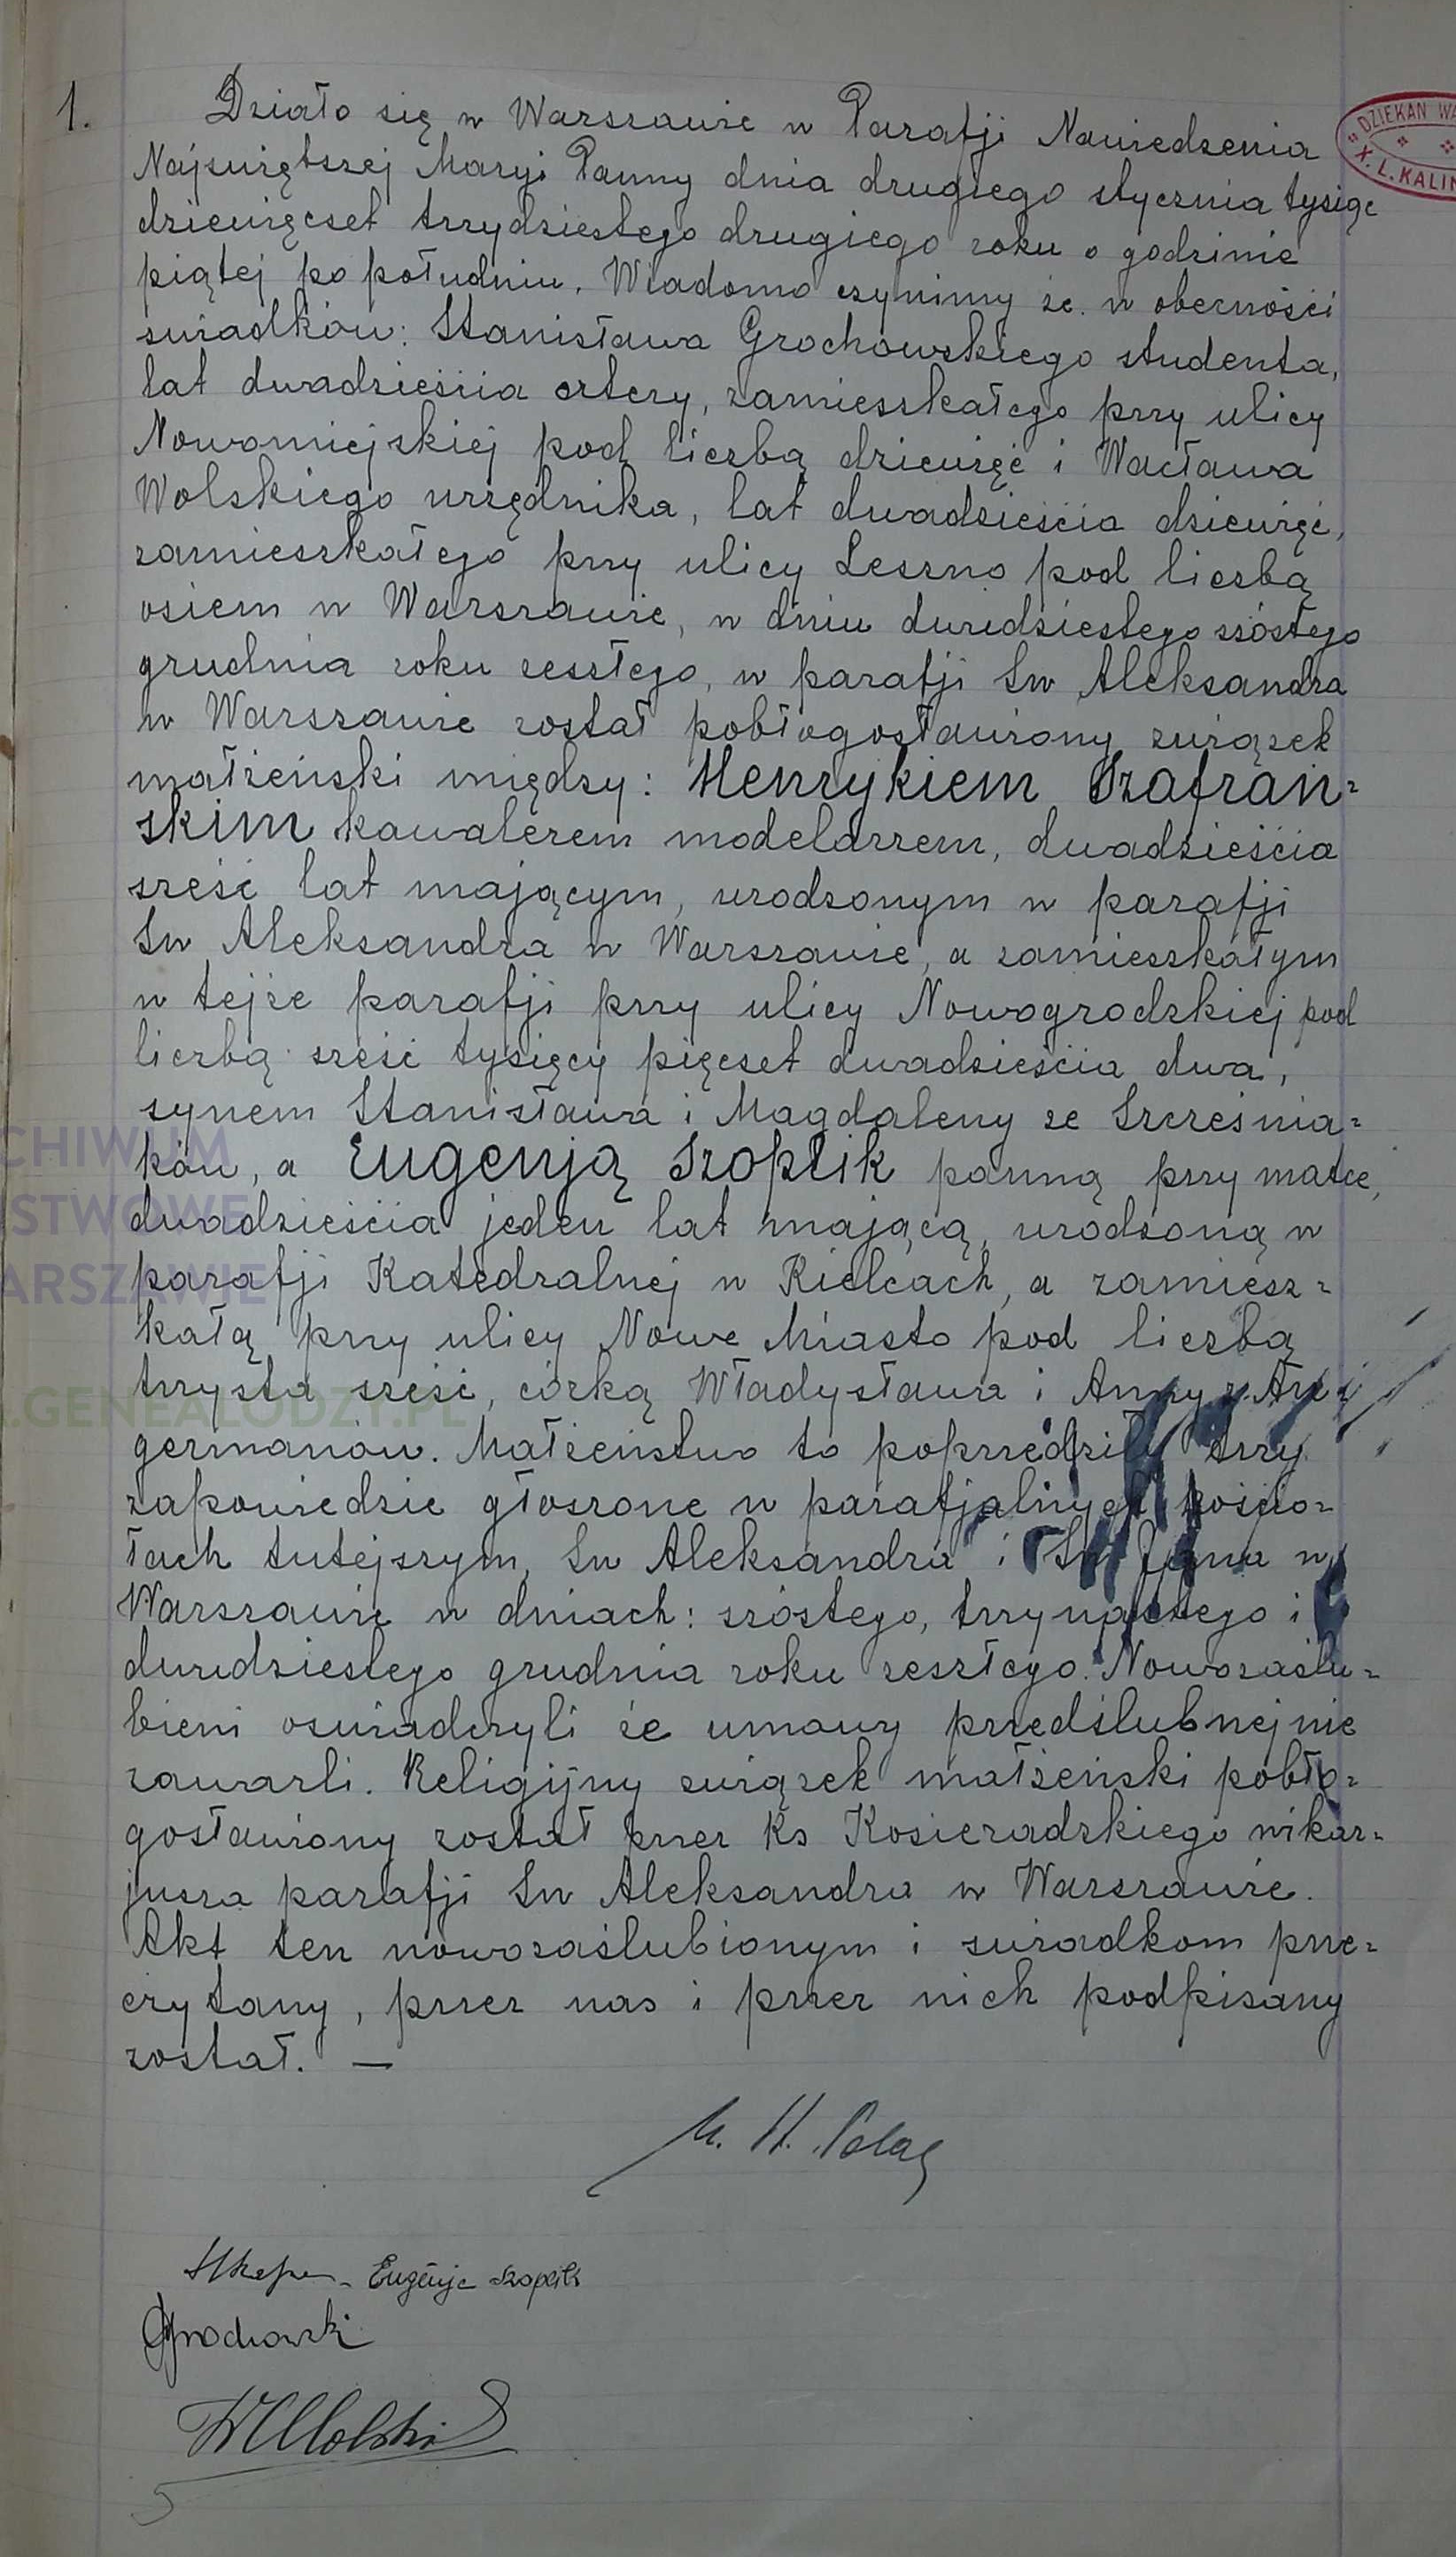 1.
Działo się w Warszawie w Parafji Nawiedzenia
Najświętszej Maryi Panny dnia drugiego stycznia tysiąc
dziewięćset trzydziestego drugiego roku o godzinie
piątej po południu. Wiadomo czynimy że w obecności
świadków: Stanisława Grochowskiego studenta,
lat dwadzieścia cztery, zamieszkałego przy ulicy
Nowomiejskiej pod liczbą dziewięć i Wacława
Wolskiego urzędnika, lat dwadzieścia dziewięć,
zamieszkałego przy ulicy Leszno pod liczbą
osiem w Warszawie, w dniu dwudziestego szóstego
grudnia roku zeszłego, w parafji Św Aleksandra
w Warszawie został pobłogosławiony związek
małżeński między: Henrykiem Szafrań=
skim kawalerem modelarzem, dwadzieścia
sześć lat mającym, urodzonym w parafji
Św Aleksandra w Warszawie, a zamieszkałym
w tejże parafji przy ulicy Nowogrodzkiej pod
liczbą sześć tysięcy pięćset dwadzieścia dwa,
synem Stanisława i Magdaleny ze Szcześnia=
ków, a Eugenją Szoplik panną przy matce,
dwadzieścia jeden lat mającą, urodzoną w
parafji Katedralnej w Kielcach, a zamiesz=
kałą przy ulicy Nowe Miasto pod liczbą
trzysta sześć, córką Władysława i Anny z
germanów. Małżeństwo to poprzedziły trzy
zapowiedzie głoszone w parafjalnych kościo=
łach tutejszym, Św Aleksandra i Św Jana w
Warszawie w dniach: szóstego, trzynastego i
dwudziestego grudnia roku zeszłego. Nowozaślu=
bieni oświadczyli że umowy przedślubnej nie
zawarli. Religijny związek małżeński pobło=
gosławiony został przez Ks Kosieradzkiego wikar=
jusza parafji Św Aleksandra w Warszawie.
Akt ten nowozaślubionym i świadkom prze=
czytany, przez nas i przez nich podpisany
został. —
Eugenja Szoplik
Grochowski
WWolski
5
DZIEKAN WA
X. L. KALIN
CHIWUM
STWOWE
ARSZAWIE
.GENEALODZY.PL